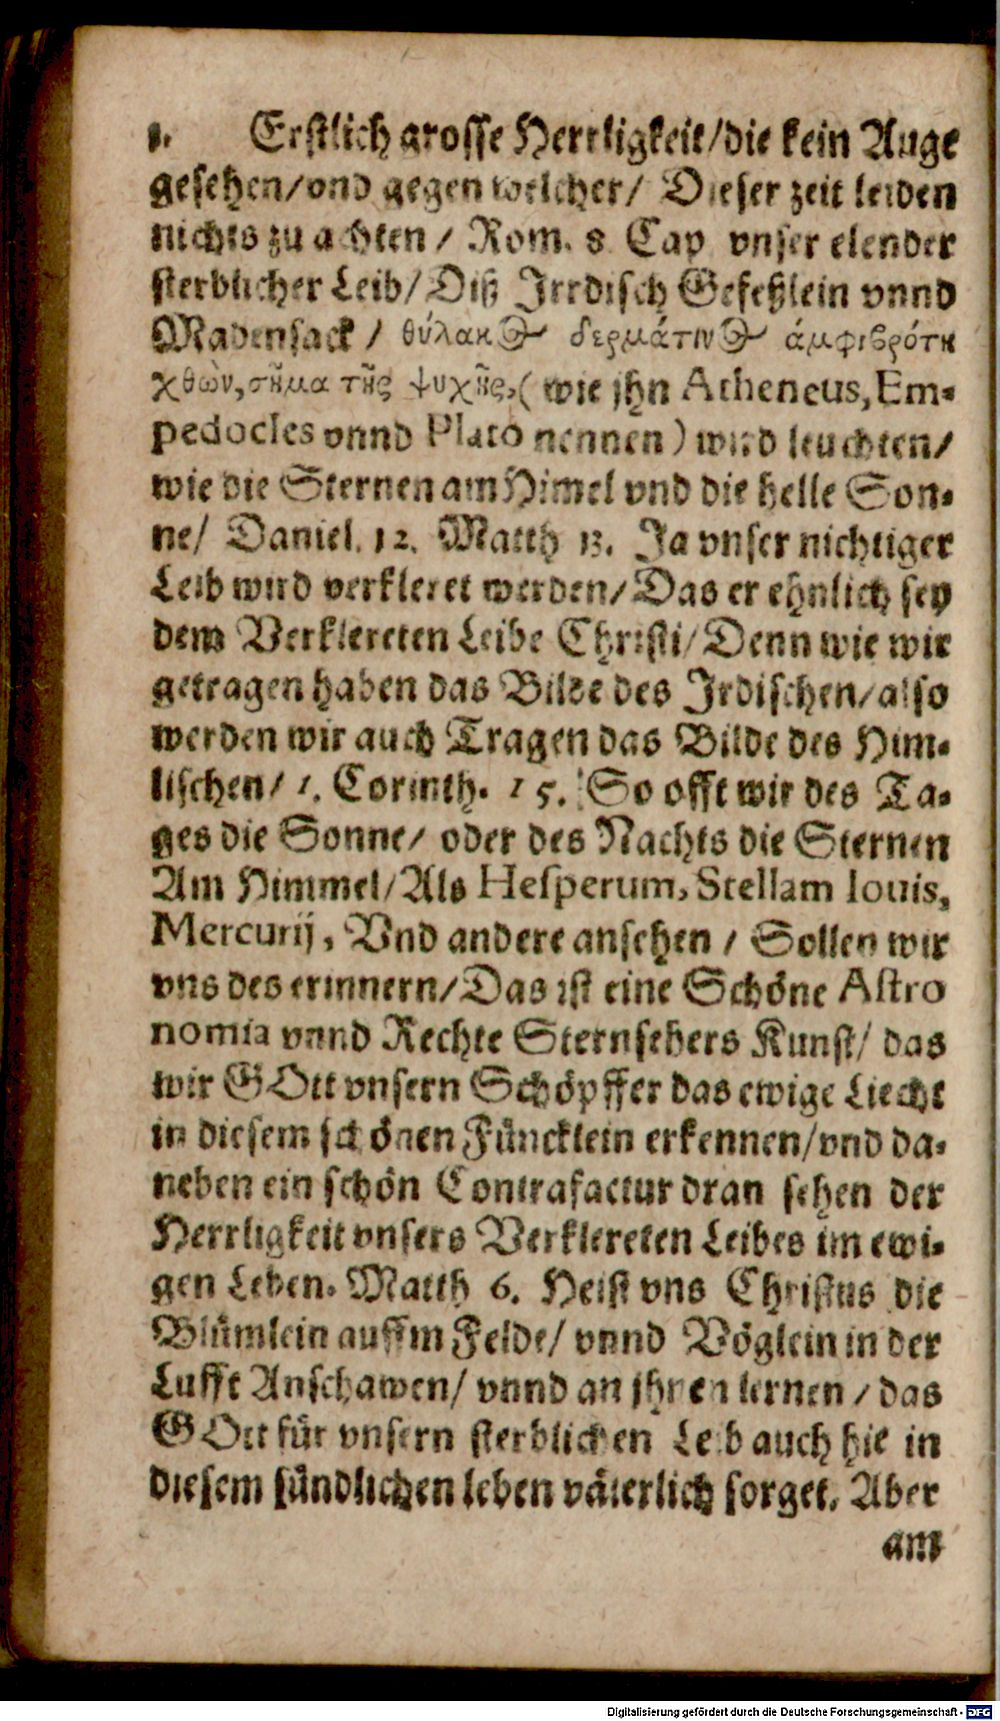 1. Erstlich grosse Herrligkeit/die kein Auge
gesehen/vnd gegen welcher/ Dieser zeit leiden
nichts zu achten / Rom. 8 Cap vnser elender
sterblicher Leib/Diß Jrrdisch Gefeßlein vnnd
Madensack / θύλακ⊙ δερμάτιν⊙ ἀμφιβρότη
χθὼν, σῆμα τῆς ψυχῆς,( wie jhn Atheneus, Em-
pedocles vnnd Plato nennen) wird leuchten/
wie die Sternen am Himel vnd die helle Son-
ne/ Daniel. 12. Matth 13. Ja vnser nichtiger
Leib wird verkleret werden/Das er ehnlich sey
dem Verklereten Leibe Christi/Denn wie wir
getragen haben das Bilde des Jrdischen/also
werden wir auch Tragen das Bilde des Him-
lischen/ 1. Corinth. 15. So offt wir des Ta-
ges die Sonne/ oder des Nachts die Sternen
Am Himmel/Als Hesperum, Stellam Iouis,
Mercurij, Vnd andere ansehen / Sollen wir
vns des erinnern/Das ist eine Schöne Astro
nomia vnnd Rechte Sternsehers Kunst/ das
wir GOtt vnsern Schöpffer das ewige Liecht
in diesem schönen Füncklein erkennen/vnd da-
neben ein schön Contrafactur dran sehen der
Herrligkeit vnsers Verklereten Leibes im ewi-
gen Leben. Matth 6. Heist vns Christus die
Blümlein auffm Felde/ vnnd Vöglein in der
Lufft Anschawen/ vnnd an jhnen lernen / das
GOtt für vnsern sterblichen Leib auch hie in
diesem sündlichen leben väterlich sorget. Aber
am
Digitalisierung gefördert durch die Deutsche Forschungsgemeinschaft - DFG